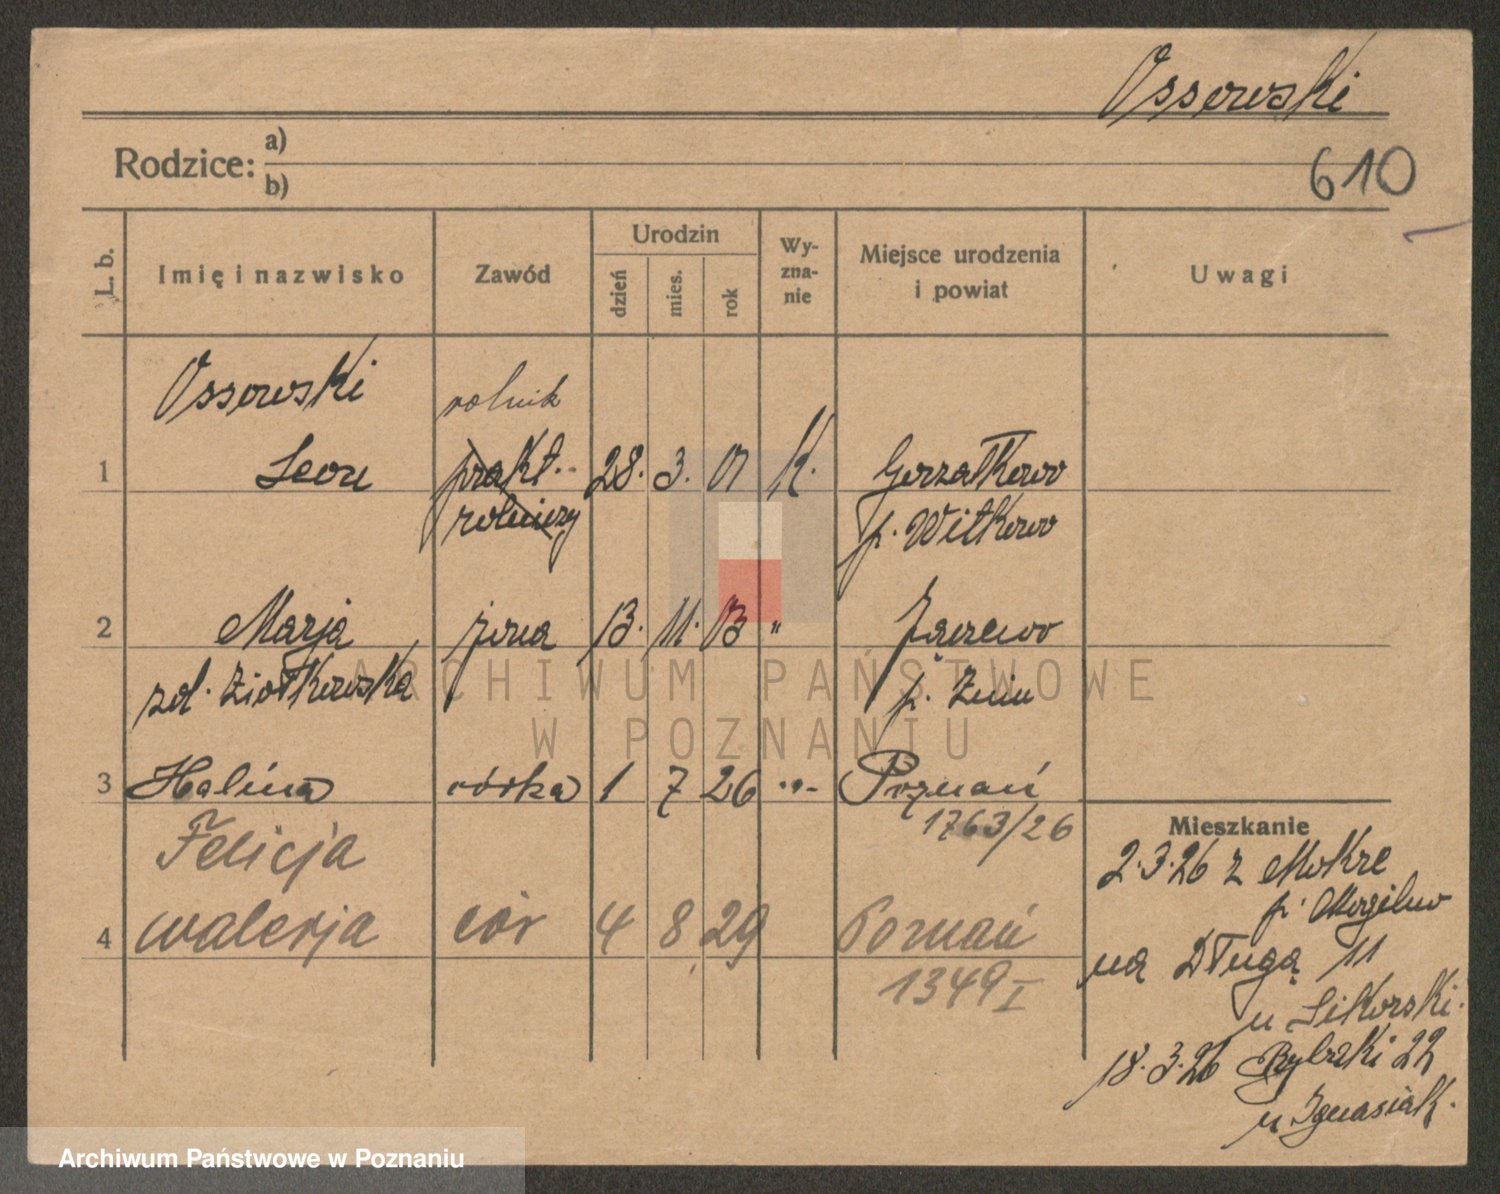 Ossowski
Rodzice: a)
b)
610
L. b.
Imię i nazwisko
Zawód
Urodzin
dzień
mies.
rok
Wy-
zna-
nie
Miejsce urodzenia
i powiat
Uwagi
Ossowski
rolnik
1 Leon prakt. 28. 3. 01 K. Gorzałkowo
rolniczy p. Witkowo
2 Marja żona 13. 11. 03 "
zd. Ziółkowska p. Żnin
3 Halina córka 1 7 26 -"- Poznań
1763/26
Felicja
4 Walerja cór 4 8 29 Poznań
1349 I
Mieszkanie
2.3.26 z Mokre
p. Mogilno
na Długą 11
u Sikorski.
18.3.26 Rybaki 22
u Ignasiak.
ARCHIWUM PAŃSTWOWE
W POZNANIU
Archiwum Państwowe w Poznaniu